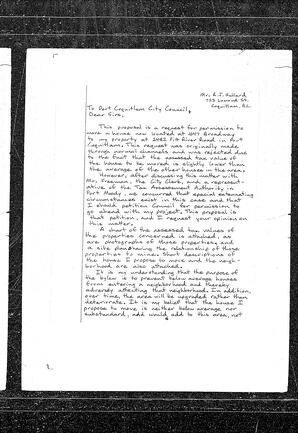 Mr. A.J. Hallard
Coquitlam, B.C.
To Port Coquitlam City Council,
Dear Sirs,
This proposal is a request for permission to
move a house now located at Broadway
to my property at Pitt River Road in Port
Coquitlam. This request was originally made
through normal channels and was rejected due
to the fact that the assessed tax value of
the house to be moved is slightly lower than
the average of the other houses in the area.
However, after discussing this matter with
Mr. Freeman, the City Clerk, and a represent-
ative of the Tax Assessment Authority in
Port Moody, we concurred that special extenuating
circumstances exist in this case and that
I should petition Council for permission to
go ahead with my project. This proposal is
that petition, and I request your opinion on
this matter.
A chart of the assessed tax values of
the properties concerned is attached, as
are photographs of those properties and
a site plan showing the relationship of those
properties to mine. Short descriptions of
the house I propose to move and the neigh-
borhood are also attached.
It is my understanding that the purpose of
the bylaw is to prevent below average houses
from entering a neighborhood and thereby
adversly affecting that neighborhood. In addition,
over time, the area will be upgraded rather than
deteriorate. It is my belief that the house I
propose to move is neither below average nor
substandard, and would add to this area, not